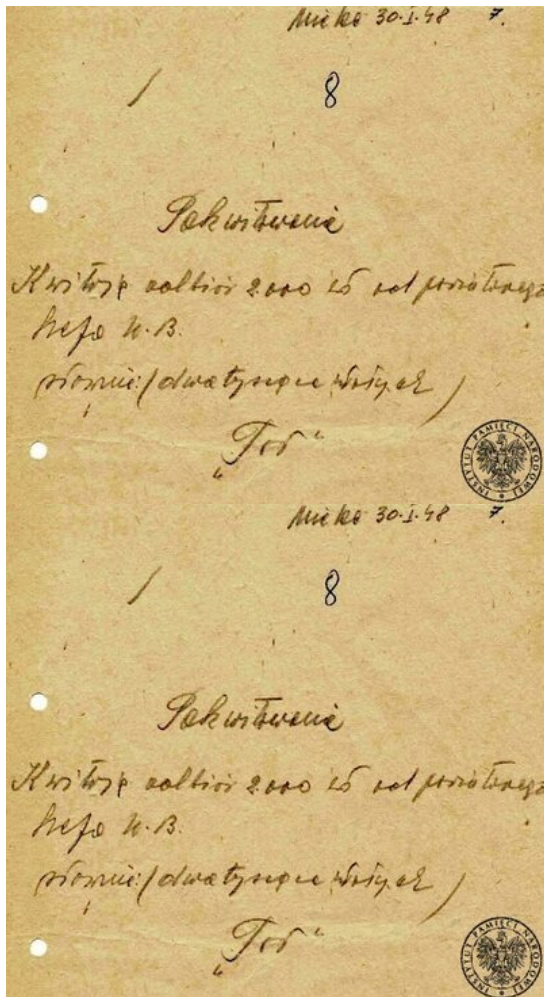 30.I.48 7.
8
Pokwitowanie
Kwituję odbiór 2000 zł od powiatowego
szefa U.B.
słownie: (dwa tysiące złotych)
INSTYTUT PAMIĘCI NARODOWEJ
30.I.48 7.
8
Pokwitowanie
Kwituję odbiór 2000 zł od powiatowego
szefa U.B.
słownie: (dwa tysiące złotych)
INSTYTUT PAMIĘCI NARODOWEJ